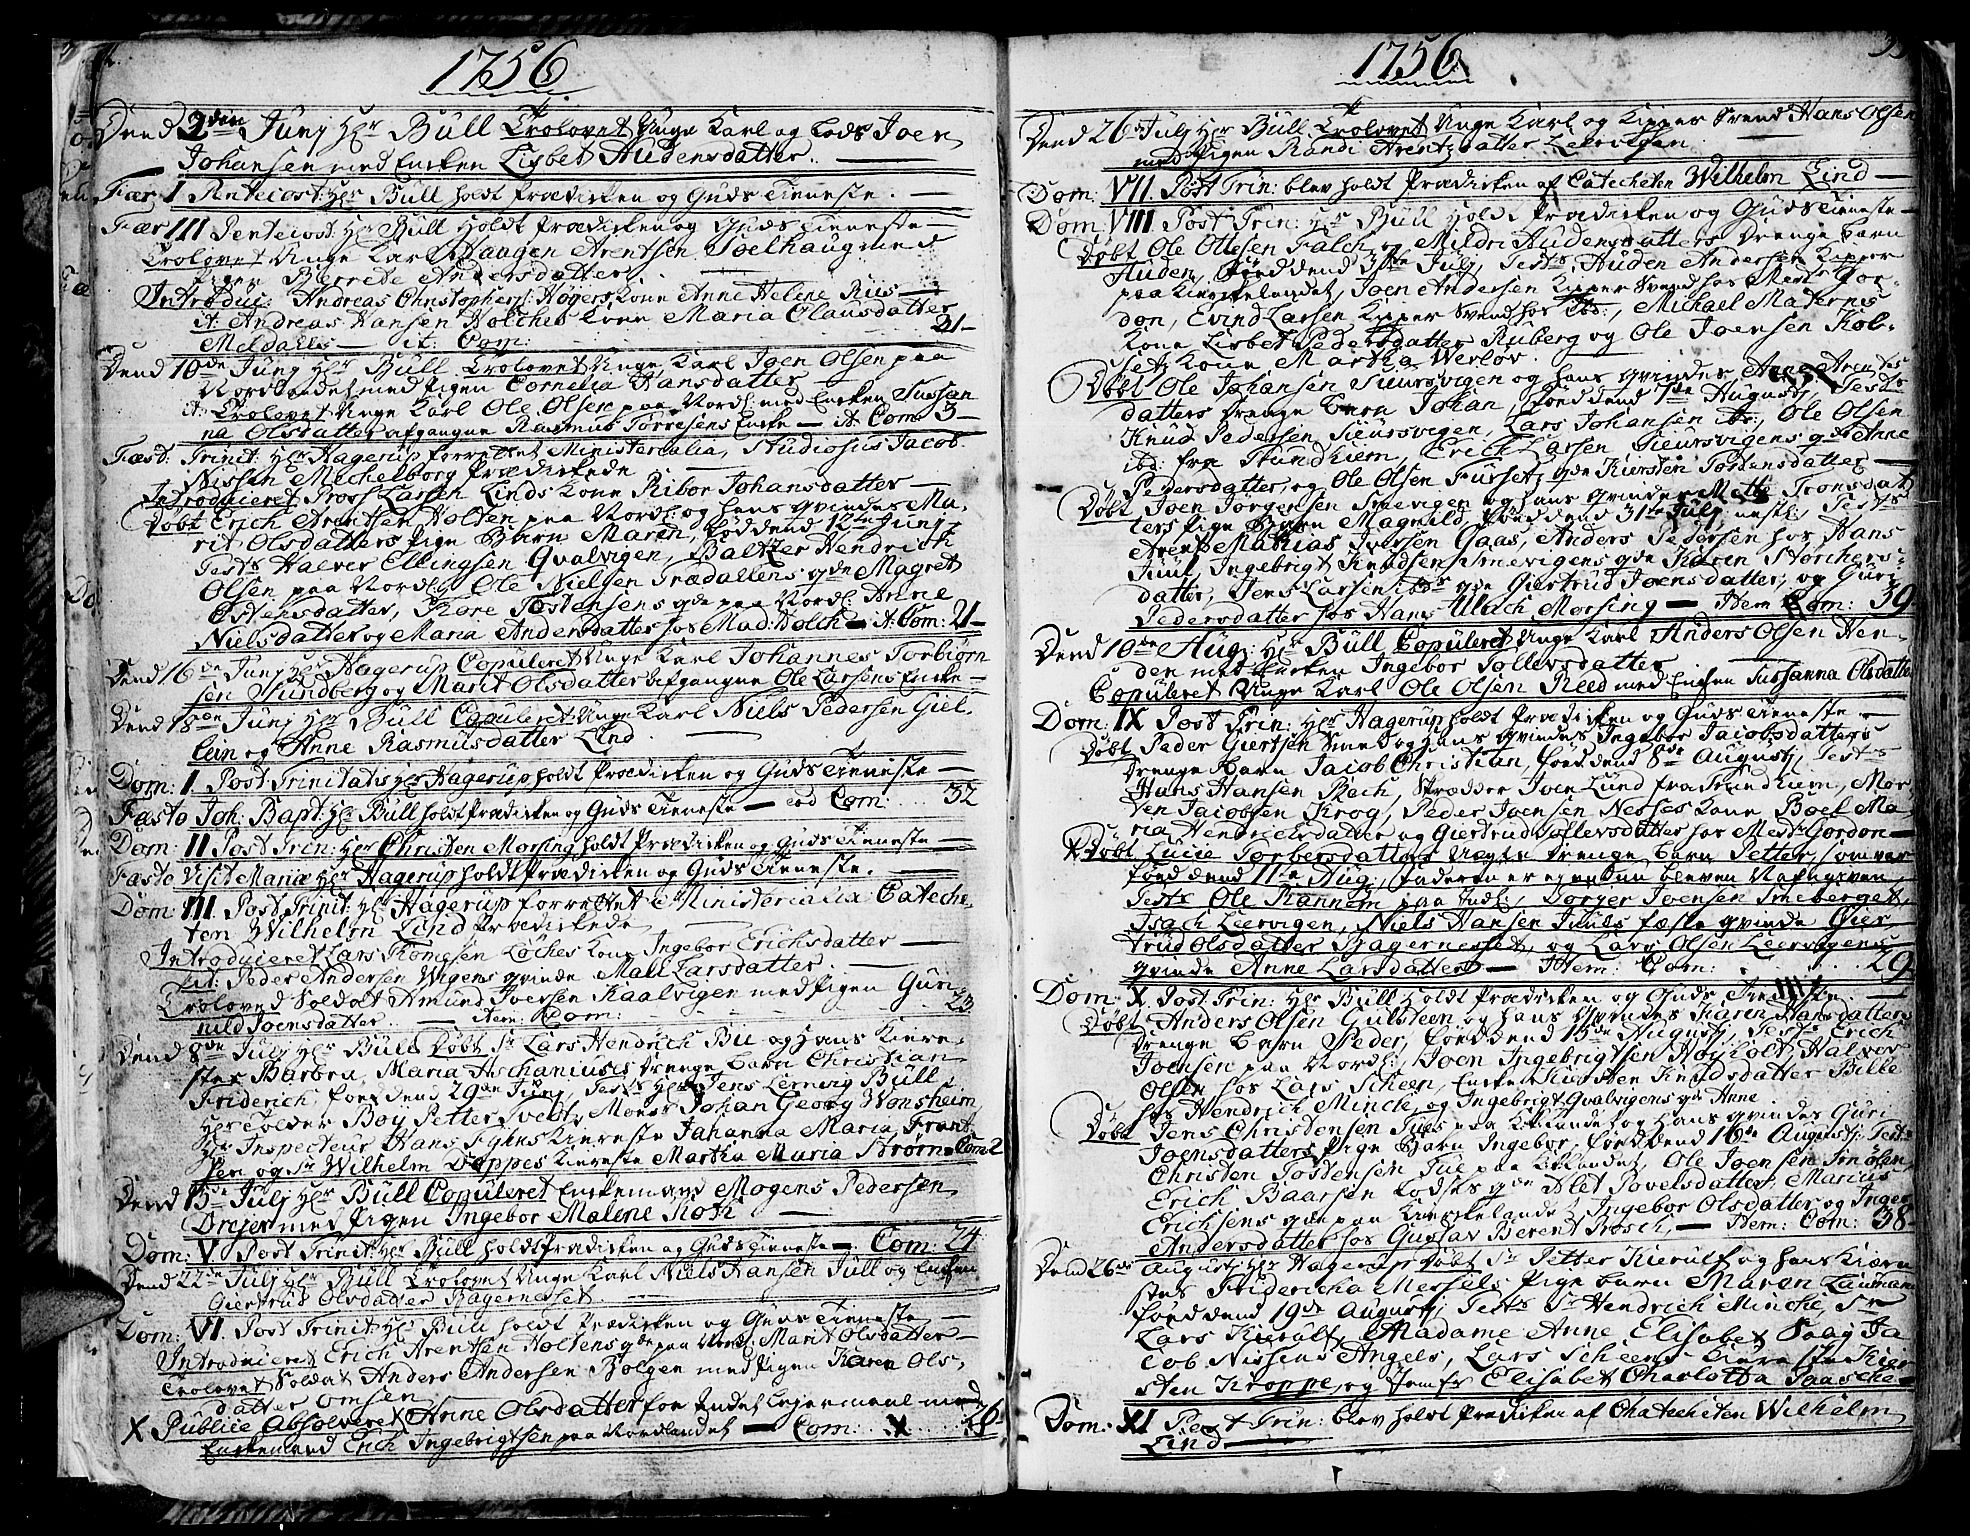 1756
Dend 2den Junj Hr Büll Trolovet Unge Karl og Lods Joen
Johansen med Encken Lisbet Audensdatter.
Fær: I Penteiost: Hr Büll holdt Prædicken og Guds Tieneste.
Fær III Penteiost: Hr Büll Holdt Prædicken og Guds Tieneste
Trolovet Unge Karl Haagen Arentsen Soelhaug med
Pigen Berrete Andersdatter
Introduc: Andreas Christophers: Høyers Kone Anne Helene Rüs
it: Andreas Hansen Holches Kone Maria Clausdatter
Meldalls — it: Com: 21
Dend 10de Junj Hr Büll Trolovet Unge Karl Joen Olsen paa
Nordlandet med Pigen Cornelia Hansdatter
it: Trolovet Unge Karl Ole Olsen paa Nordl: med Encken Sussan
na Olsdatter afgangne Rasmus Torresens Encke — it: Com 3
Fæst: Trinit: Hr Hagerup forrettet Ministerialia, Studiosus Jacob
Nissen Mechelborg Prædickede
Introduceret Joss Larsen Linds Kone Ribor Johansdatter
Døbt Erich Arentsen Holten paa Nordl: og hans Qvindes Ma-
rit Olsdatters Pige Barn Maren, fød dend 12te Junj
Tests Halver Ellingsen Qvalvigen, Baltzer Hendrich
Olsen paa Nordl: Ole Nielsen Trædallens qde Magret
Ostensdatter, Tore Tostensens qde paa Nordl: Anne
Nielsdatter og Maria Andersdatter hos Mad: Holch — it: Com: 21
Dend 16de Junj Hr Hagerup Copuleret Unge Karl Johannes Torbiørn
sen Sundberg og Marit Olsdatter afgangne Ole Larsens Encke
Dend 18de Junj Hr Büll Copuleret Unge Karl Niels Pedersen Giel-
lein og Anne Rasmusdatter Lind.
Dom: I Post Trinitatis Hr Hagerup holdt Prædicken og Guds Tieneste
Fæsto Joh: Bapt: Hr Büll holdt Prædicken og Guds Tieneste — Com: 32
Dom: II Post Trin: Hr Christen Morsing holdt Prædicken og Guds Tieneste
Fæsto Visit Mariæ Hr Hagerup holdt Prædicken og Guds Tieneste.
Dom: III. Post Trinit: Hr Hagerup forrettet Ministerialia Cateche-
ten Wilhelm Lind Prædickede
Introduceret Lars Thomesen Løches Kone Ingebor Erichsdatter
it: Peder Andersen Wigens Qvinde Mall Larsdatter
Troloved Soldat Amund Iversen Kaalvigen med Pigen Gun-
nild Joensdatter — item: Com: 23
Dend 8de Julj Hr Büll Døbt Sr Lars Hendrich Bie og hans Kiere-
stes Barbra, Maria Aschaniusis Drenge Barn Christian
Friderich, fød dend 29de Junj, Tests Hr Jens Lerning Büll,
Hr Tolder Boy Petter Tvedt, Monsr Johan Georg Wonsheim
Hr Inspecteur Hans Egens Kiereste Johanna Maria Frant-
zen og Sr Wilhelm Doppes Kiereste Martha Maria Strøm Com 2
Dend 15de Julj Hr Büll Copuleret Enckemand Mogens Pedersen
Drejer med Pigen Ingebor Malene Roth
Dom: V. Post Trinit: Hr Büll holdt Prædicken og Guds Tieneste — Com: 24
Dend 22de Julj Hr Büll Trolovet Unge Karl Niels Hansen Jüll og Encken
Giertrud Olsdatter Bagernesset
Dom: VI. Post Trinit: Hr Büll holdt Prædicken og Guds Tieneste
Introduceret Erich Arentsen Holtens qde paa Nordl: Marit Olsdatter
Trolovet Soldat Anders Andersen Bolgen med Pigen Karen Ols-
datter Omsen
X Publice Absolveret Anne Olsdatter for Endel Lejermaal med
Enckemand Erich Ingebrigtsen paa Nordlandet — Com: X 26
1756
Dend 26de Julj Hr Büll Trolovet Unge Karl og Kipper Svend Hans Olsen
med Pigen Randi Arentzdatter Leervigen
Dom: VII. Post Trin: blev holdt Prædicken af Catecheten Wilhelm Lind
Dom: VIII Post Trin: Hr Büll Holdt Prædicken og Guds Tieneste
Døbt Ole Ollesen Falch og Mildri Audensdatters Drenge Barn
Auden, fød dend 31te Julj, Tests, Auden Andersen Kipper
paa Kirckelandet, Joen Andersen Kipper Svend hos Medr Gor-
don, Evind Larsen Kipper Svend hos ibd:, Michael Madernes
Kone Lisbet Pedersdatter Ruberg og Ole Joensen Kol-
set Kone Martha Werlov.
Døbt Ole Johansen Sieursvigen og hans Qvindes Anne Arentz
datters Drenge Barn Johan, fød dend 7de Augustj Tests
Knud Pedersen Sieursvigen, Lars Johansen ib:, Ole Olsen
ibd: fra Trundhiem, Erich Larsen Sieursvigens qde Anne
Pedersdatter, og Ole Olsen Fursetz qde Kiersten Tostensdatter
Døbt Joen Jørgensen Smevigen og hans Qvindes Mette Tronsdat
ters Pige Barn Magnild, fød dend 31te Julj nestl:, Tests
Arent Mathias Iversen Gaas, Anders Pedersen hos Hans
Jüül, Ingebrigt Knudsen Smevigens qde Karen Storchers-
datter, Jens Larsen Lods qde Giertrud Joensdatter, og Guri
Pedersdatter hos Hans Ulach Morsing — Item Com: 39
Dend 10de Aug: Hr Büll Copuleret Unge Karl Anders Olsen Hen-
den med Encken Ingebor Tollevsdatter
Copuleret Unge Karl Ole Olsen Reed med Encken Sussanna Olsdatter
Dom: IX Post Trin: Hr Hagerup holdt Prædicken og Guds Tieneste
Døbt Peder Giertsen Smed og hans Qvindes Ingebor Jacobsdatters
Drenge Barn Jacob Christian, fød dend 8de Augustj, Tests
Hans Hansen Bach, Skredder Iver Lund fra Trundhiem, Mor
ten Jacobsen Krog, Peder Joensen Nesses Kone Boel Ma-
ria Hendrichsdatter og Giertrud Tollevsdatter hos Medr Gordon
X Døbt Lucie Torbersdatters Uægte Drenge Barn Petter, som var
fød dend 11te Aug:, faderen er ej endnu bleven Nafngiven,
Tests Ole Rannem paa Indl:, Dorger Joensen Smeberget,
Isach Leervigen, Niels Hansen Juuls fæste Qvinde Gier
trud Olsdatter Bagernesset, og Lars Olsen Leervigens
Qvinde Anne Larsdatter — Item: Com: 29
Dom: X. Post Trin: Hr Büll Holdt Prædicken og Guds Tieneste
Døbt Anders Olsen Gulsteen og hans Qvindes Karen Hansdatters
Drenge Barn Peder, fød dend 15de Augustj, Tests Erich
Joensen paa Nordl:, Joen Ingebrigtsen Høyholt, Halvor
Olsen hos Lars Scheen, Encke Kiersten Knudsdatter Bilbe
hos Hendrich Mincke, og Ingebrigt Qvalvigens qde Anne
Døbt Jens Christensen Tues paa Kirlandet og hans Qvindes Guri
Joensdatters Pige Barn Ingebor, fød dend 16de Augustj Tests
Christen Tostensen Tue paa Kirlandet, Ole Joensen Smølen,
Erich Baarsen Lodses qde Alet Povelsdatter, Marius
Erichsens qde paa Kirckelandet, Ingebor Olsdatter og Inger
Andersdatter hos Gustav Berent Brosch, — Item: Com: 38
Dend 26de Augustj Hr Hagerup Døbt Sr Petter Kierulf og hans Kiære
stes Fridericha Mersels Pige Barn Maren Laumann
fød dend 19de Augustj, Tests Sr Hendrich Mincke, Sr
Lars Kierulf, Madame Anne Elisabet Saag Ja
cob Nissens Angels, Lars Scheens Kiereste Kier
sten Kroppe, og Jomfr Elisabet Charlotta Paasche
Dom: XI Post Trin: blev holdt Prædicken af Chatecheten Wilhelm
Lind